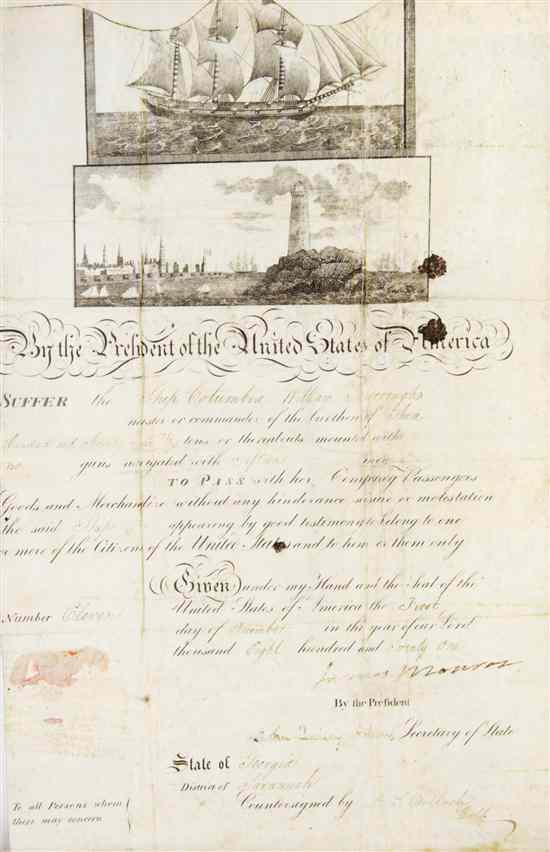 By the President of the United States of America
SUFFER the Ship Columbia William
master or commander of the burthen of Three
hundred and tons or thereabouts mounted with
no guns navigated with men
TO PASS with her Company Passengers
Goods and Merchandize without any hinderance seisure or molestation
the said Ship appearing by good testimony to belong to one
or more of the Citizens of the United States and to him or them only
Given under my Hand and the Seal of the
United States of America the First
Number Eleven
day of in the year of our Lord
thousand Eight hundred and twenty one
James Monroe
By the President
John Quincy Adams Secretary of State
State of Georgia
District of Savannah
To all Persons whom
these may concern
Countersigned by
Coll